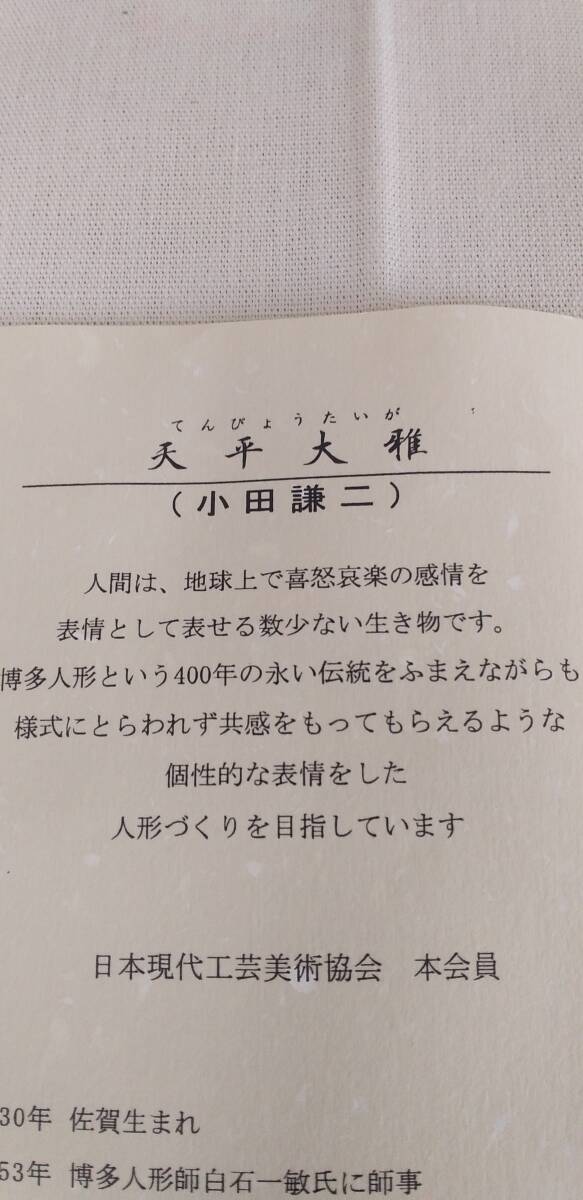 てんぴょうたいが
天平大雅
(小田謙二)
人間は、地球上で喜怒哀楽の感情を
表情として表せる数少ない生き物です。
博多人形という400年の永い伝統をふまえながらも
様式にとらわれず共感をもってもらえるような
個性的な表情をした
人形づくりを目指しています
日本現代工芸美術協会 本会員
30年 佐賀生まれ
53年 博多人形師白石一敏氏に師事